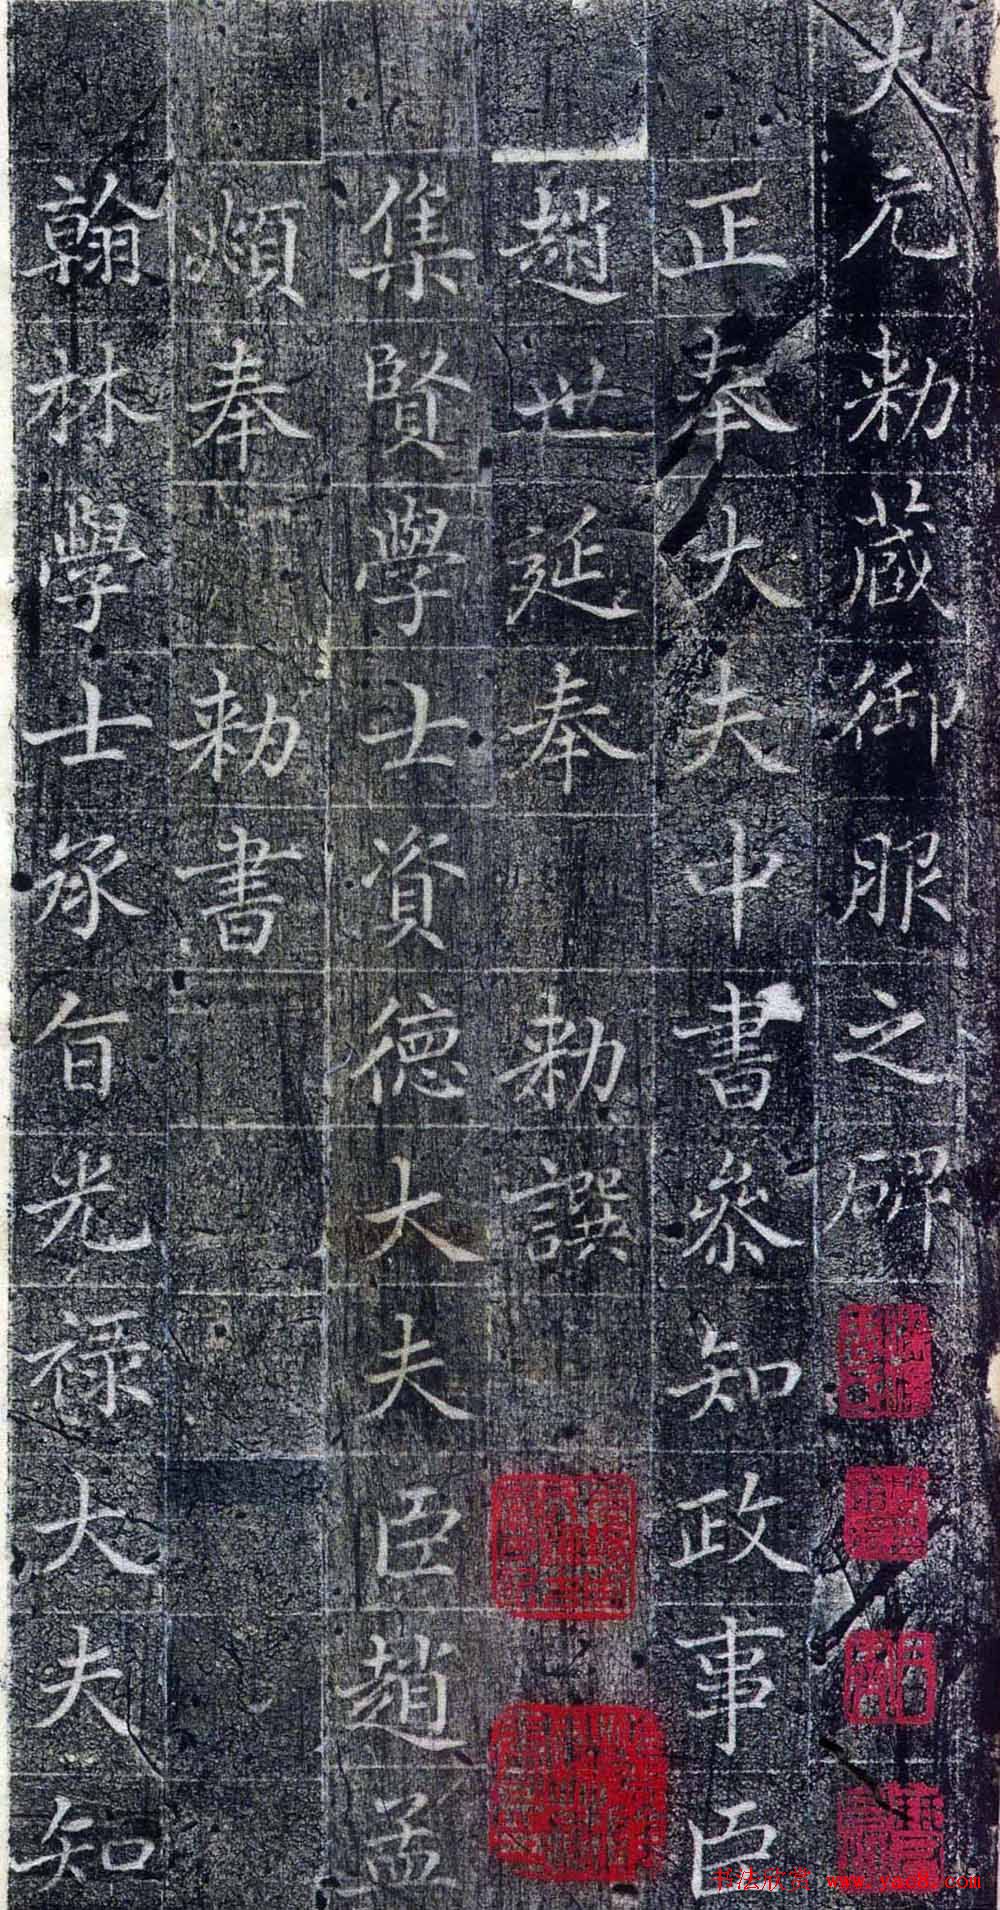 大元敕藏御服之碑
正奉大夫中書參知政事臣
趙世延奉敕譔
集賢學士資德大夫臣趙孟
頫奉敕書
翰林學士承旨光祿大夫知
书法欣赏 www.yac8.com